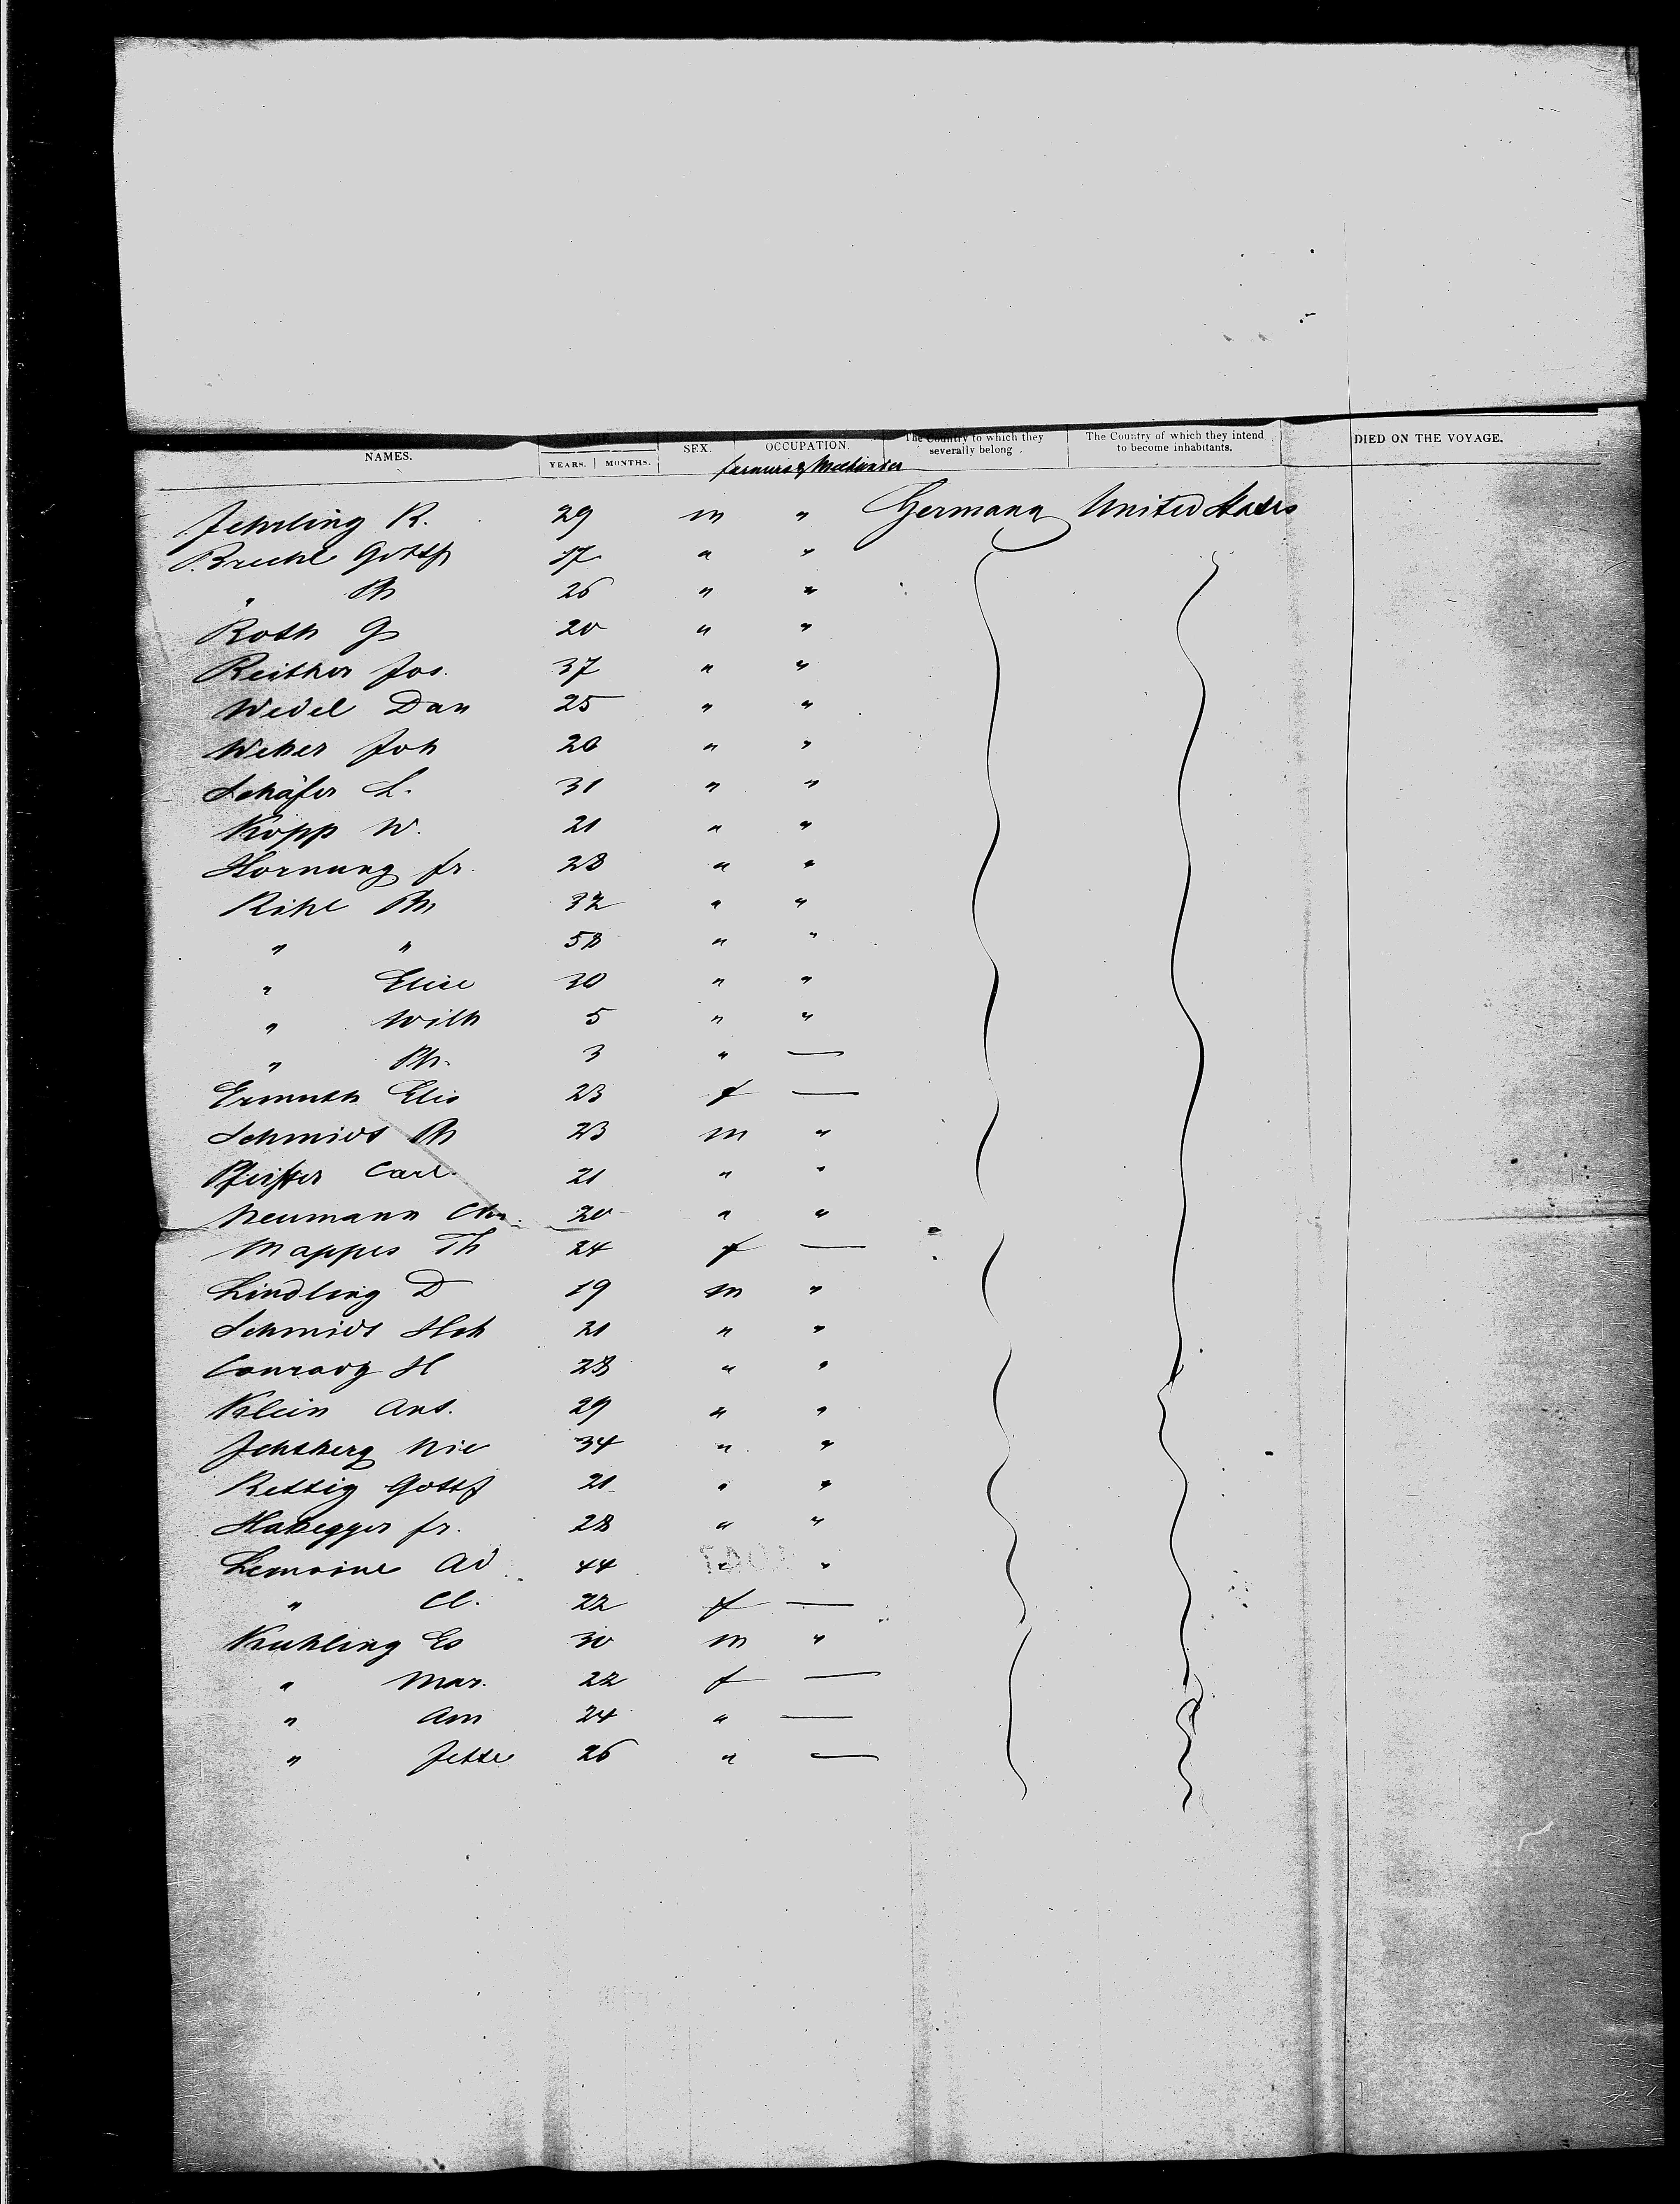 NAMES. AGE. YEARS. MONTHS. SEX. OCCUPATION. The Country to which they severally belong. The Country of which they intend to become inhabitants. DIED ON THE VOYAGE.
farmers & Mechanics
Jehrling R. 29 m " Germany United States
Bruchl Gottfr 17 " "
" Ph 26 " "
Roth G 20 " "
Reither Jos. 37 " "
Wedel Dan 25 " "
Weber Joh 20 " "
Schäfer L. 31 " "
Kopp W. 21 " "
Hornung fr. 28 " "
Rihl Ph 32 " "
" " 58 " "
" Elise 30 " "
" Wilh 5 " "
" Ph. 3 " —
Ermuth Elis 23 f —
Schmidt Ph 23 m "
Pfeiffer Carl. 21 " "
Neumann Chr. 20 " "
Mappes Th 24 f —
Lindling D 19 m "
Schmidt Hch 21 " "
Conrady H 28 " "
Klein Ant. 29 " "
Ichtberg Nic 34 " "
Rettig Gottf 21 " "
Habegger fr. 28 " "
Lemoine Ad 44 " "
" Cl. 22 f —
Kuhling Es 30 m "
" Mar. 22 f —
" Am 24 " —
" Jette 26 " —